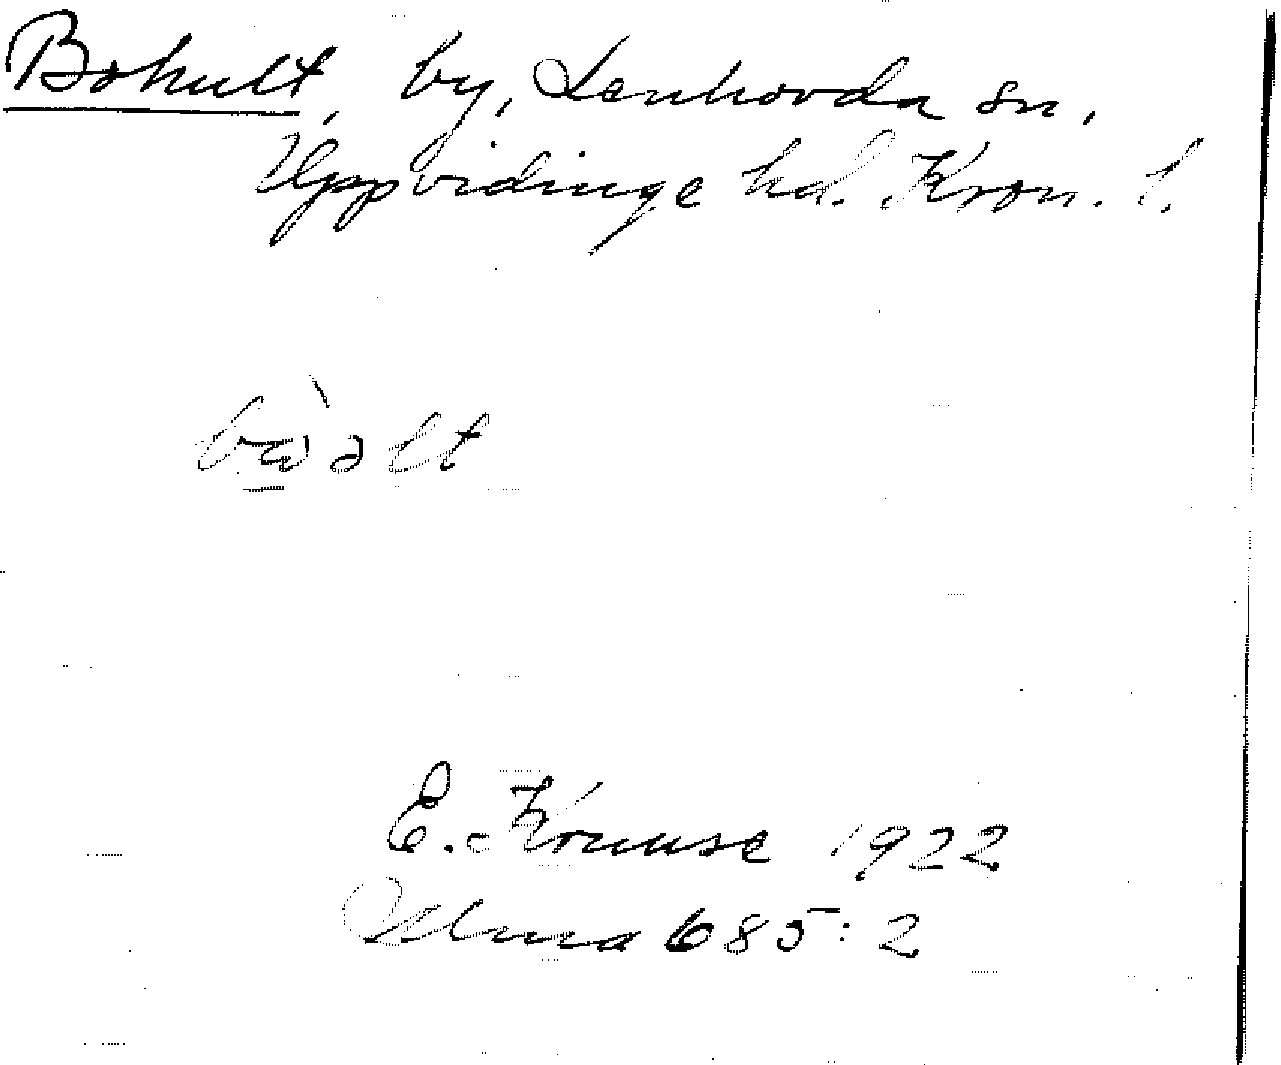 Bohult, by, Lenhovda sn,
Uppvidinge hd. Kron. l.
bὼəlt
E. Kruuse 1922
Ulma 685:2